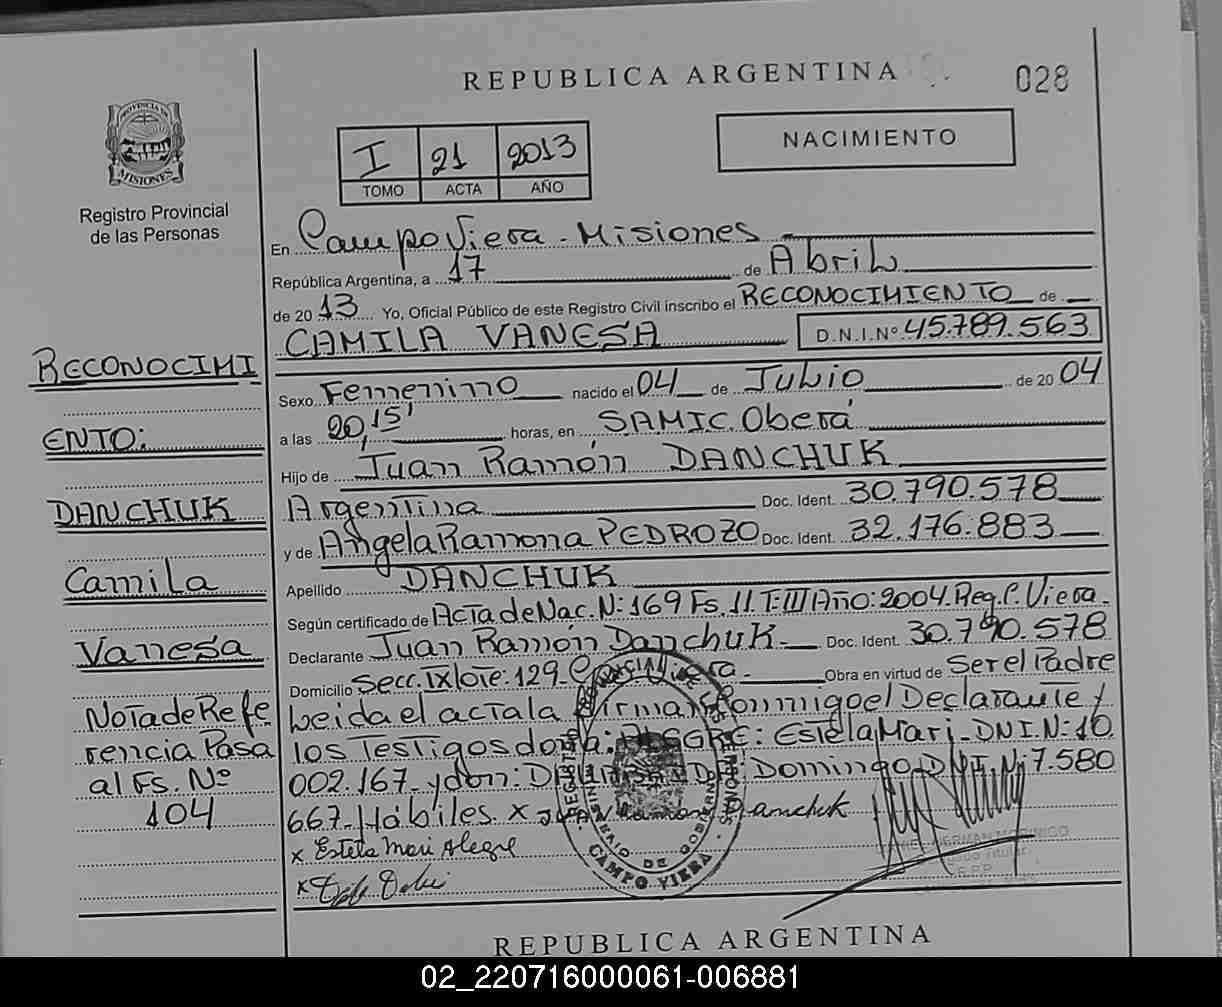 REPUBLICA ARGENTINA
028
PROVINCIA DE
MISIONES
Registro Provincial
de las Personas
I 21 2013
TOMO ACTA AÑO
NACIMIENTO
En Campo Viera - Misiones
República Argentina, a 17 de Abril
de 20 13 Yo, Oficial Público de este Registro Civil inscribo el RECONOCIMIENTO de
CAMILA VANESA D.N.I.Nº 45.789.563
Sexo Femenino nacido el 04 de Julio de 20 04
a las 20,15' horas, en SAMIC. Oberá
Hijo de Juan Ramón DANCHUK
Argentina Doc. Ident. 30.790.578
y de Angela Ramona PEDROZO Doc. Ident. 32.176.883
Apellido DANCHUK
Según certificado de Acta de Nac. N: 169 Fs. 11. T: III Año: 2004. Reg. C. Viera.
Declarante Juan Ramón Danchuk Doc. Ident. 30.790.578
Domicilio Secc. IX lote: 129. C. Viera. Obra en virtud de Ser el Padre
Leida el acta la firman conmigo el Declarante y
los Testigos doña: ALEGRE: Estela Mari - DNI. N: 10.
002.167. y don: Domingo DNI. N: 7.580
667. Hábiles. x Juan Ramon Danchuk
x Estela Mari Alegre
x
RECONOCIMI
ENTO:
DANCHUK
Camila
Vanesa
Nota de Refe
rencia Pasa
al Fs. Nº
104
CAMPO VIERA
REPUBLICA ARGENTINA
02_220716000061-006881